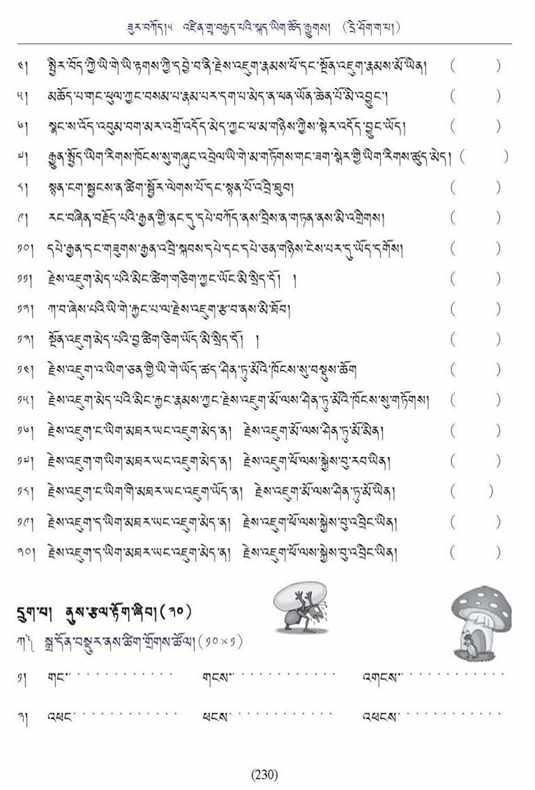 ཟུར་བཀོད།༥ འཛིན་གྲྭ་བརྒྱད་པའི་སྐད་ཡིག་ཚོད་རྒྱུགས། (དྲི་ཤོག་ག་པ།)
༤། སྤྱིར་བོད་ཀྱི་ཡི་གེ་ཡི་རྟགས་ཀྱི་དབྱེ་བ་ནི་རྗེས་འཇུག་རྣམས་ཕོ་དང་སྔོན་འཇུག་རྣམས་མོ་ཡིན། ( )
༥། མཆོད་པ་གང་ཕུལ་ཀྱང་བསམ་པ་རྣམ་པར་དག་པ་མེད་ན་ཕན་ཡོན་ཆེན་པོ་མི་འབྱུང་། ( )
༦། སྣང་ས་འོད་འབུམ་བག་མར་འགྲོ་འདོད་མེད་ཀྱང་ཕ་མ་གཉིས་ཀྱིས་སྟེར་འདོད་བྱུང་ཡོད། ( )
༧། རྒྱུན་སྤྱོད་ཡིག་རིགས་ཁོངས་སུ་གཞུང་འབྲེལ་ཡི་གེ་མ་གཏོགས་གང་ཟག་སྒེར་གྱི་ཡིག་རིགས་ཚུད་མེད། ( )
༨། སྙན་ངག་སྦྱངས་ན་ཚིག་སྦྱོར་ལེགས་པོ་དང་སྙན་པོ་འབྲི་ཐུབ། ( )
༩། རང་བཞིན་བརྗོད་པའི་རྒྱན་གྱི་ནང་དུ་དཔེ་བཀོད་ནས་བྲིས་ན་གཏན་ནས་མི་འགྲིགས། ( )
༡༠། དཔེ་རྒྱན་དང་གཟུགས་རྒྱན་འབྲི་སྐབས་དཔེ་དང་དཔེ་ཅན་གཉིས་ངེས་པར་དུ་ཡོད་དགོས། ( )
༡༡། རྗེས་འཇུག་མེད་པའི་མིང་ཚིག་གཅིག་ཀྱང་ཡོང་མི་སྲིད་དོ། ། ( )
༡༢། ཀ་བ་ཞེས་པའི་ཡི་གེ་རྐྱང་པ་ལ་རྗེས་འཇུག་རྩ་བ་ནས་མི་ཐོབ། ( )
༡༣། སྔོན་འཇུག་མེད་པའི་བྱ་ཚིག་ཅིག་ཡོད་མི་སྲིད་དོ། ། ( )
༡༤། རྗེས་འཇུག་འ་ཡིག་ཅན་གྱི་ཡི་གེ་ཡོད་ཚད་ཤིན་ཏུ་མོའི་ཁོངས་སུ་བསྡུས་ཆོག ( )
༡༥། རྗེས་འཇུག་མེད་པའི་མིང་རྐྱང་རྣམས་ཀྱང་རྗེས་འཇུག་མོ་ལས་ཤིན་ཏུ་མོའི་ཁོངས་སུ་གཏོགས། ( )
༡༦། རྗེས་འཇུག་ང་ཡིག་མཐར་ཡང་འཇུག་མེད་ན། རྗེས་འཇུག་མོ་ལས་ཤིན་ཏུ་མོ་མིན། ( )
༡༧། རྗེས་འཇུག་ག་ཡིག་མཐར་ཡང་འཇུག་མེད་ན། རྗེས་འཇུག་ཕོ་ལས་སྐྱེས་བུ་རབ་ཡིན། ( )
༡༨། རྗེས་འཇུག་ང་ཡིག་གི་མཐར་ཡང་འཇུག་ཡོད་ན། རྗེས་འཇུག་མོ་ལས་ཤིན་ཏུ་མོ་ཡིན། ( )
༡༩། རྗེས་འཇུག་ད་ཡིག་མཐར་ཡང་འཇུག་མེད་ན། རྗེས་འཇུག་ཕོ་ལས་སྐྱེས་བུ་འབྲིང་ཡིན། ( )
༢༠། རྗེས་འཇུག་ད་ཡིག་མཐར་ཡང་འཇུག་མེད་ན། རྗེས་འཇུག་ཕོ་ལས་སྐྱེས་བུ་འབྲིང་ཡིན། ( )
དྲུག་པ། ནུས་རྩལ་རྟོག་ཞིབ། (༢༠)
ཀ༽ སྒྲ་དོན་བསྡུར་ནས་ཚིག་གྲོགས་ཚོལ། (༡༠×༡)
༡། གང་ གངས་ འགངས་
༢། འཕང་ ཕངས་ འཕངས་
(230)